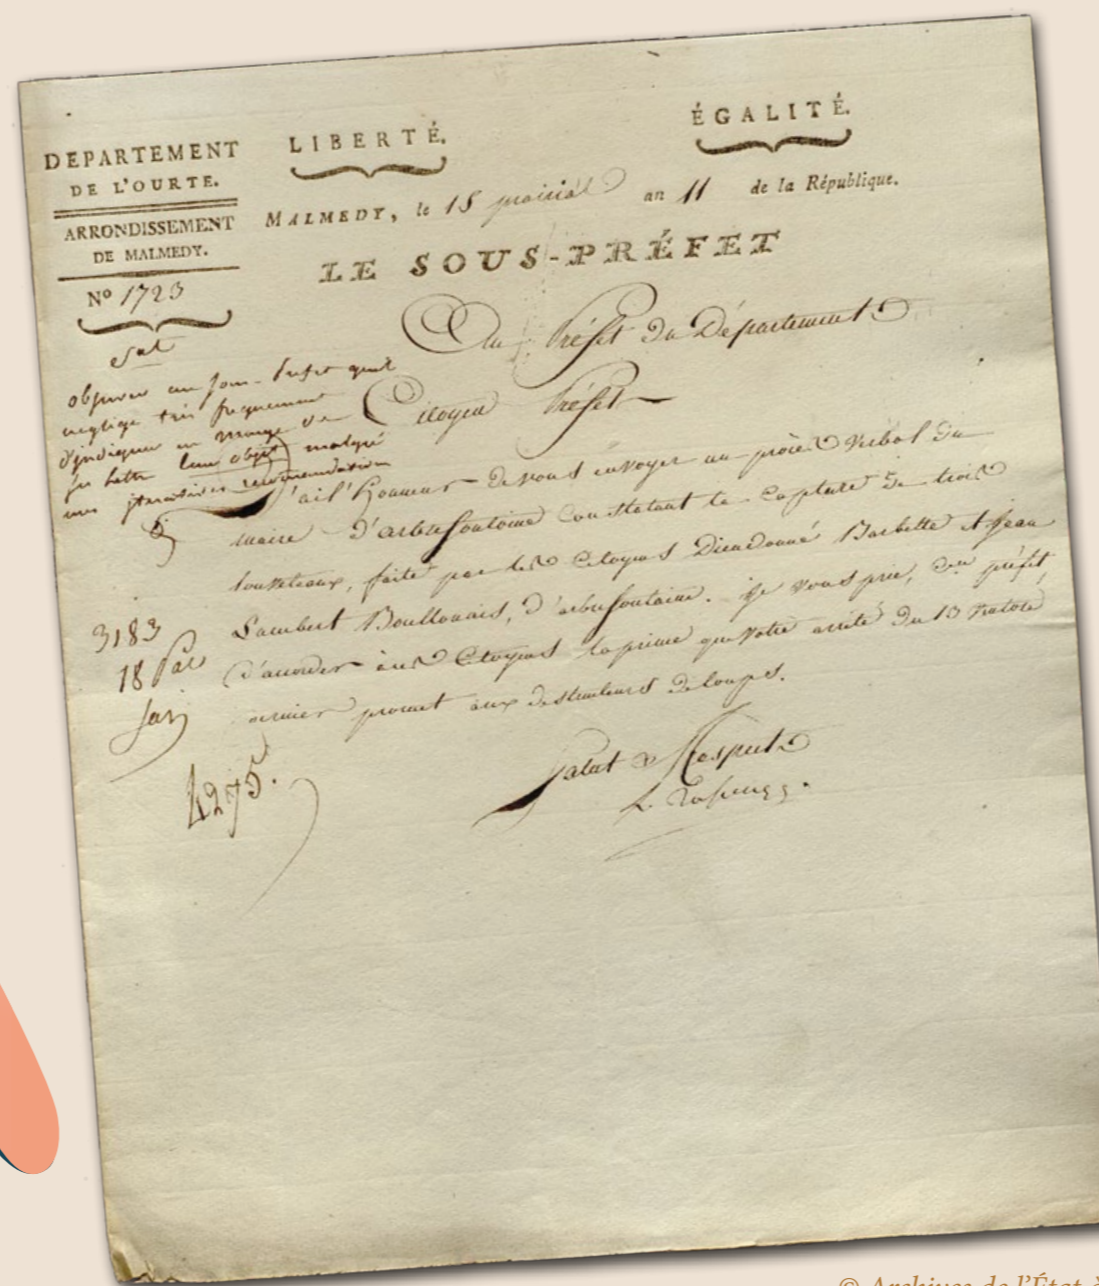 DEPARTEMENT
DE L'OURTE.
ARRONDISSEMENT
DE MALMEDY.
Nº 1723
LIBERTÉ.
ÉGALITÉ.
MALMEDY, le 15 prairial an 11 de la République.
LE SOUS-PRÉFET
Au Préfet du Département
Citoyen Préfet
observer au sous-Prefet qu'il
neglige très frequemment
d'indiquer en marge de
ses lettres leur objet malgré
mes iteratives recommendations
J'ai l'honneur de vous envoyer un procès verbal du
maire d'arbrefontaine constatant la capture de trois
louveteaux, faite par les Citoyens Dieudonné Barbette et Jean
Lambert Boullonais, d'arbrefontaine. Je vous prie, Cen préfet,
d'accorder à ces Citoyens la prime que votre arrêté du 13 ventose
dernier promet aux destructeurs de loups.
3183
18 Pal
4275.
Salut & Respect
© Archives de l'État à